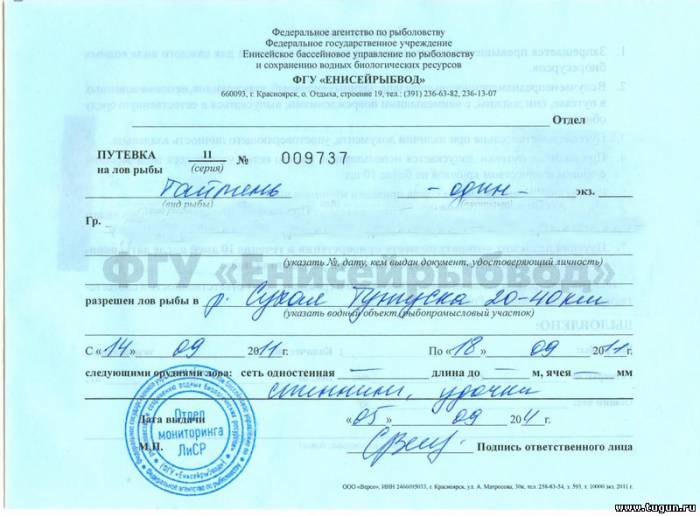 Федеральное агентство по рыболовству
Федеральное государственное учреждение
Енисейское бассейновое управление по рыболовству
и сохранению водных биологических ресурсов
ФГУ «ЕНИСЕЙРЫБВОД»
660093, г. Красноярск, о. Отдыха, строение 19, тел.: (391) 236-63-82, 236-13-07
Отдел
ПУТЕВКА 11 № 009737
на лов рыбы (серия)
Таймень - один - экз.
(вид рыбы)
Гр.
(указать №, дату, кем выдан документ, удостоверяющий личность)
ФГУ «Енисейрыбвод»
разрешен лов рыбы в р. Сухая Тунгуска 20-40 км
(указать водный объект, рыбопромысловый участок)
С «14» 09 2011 г. По «18» 09 2011 г.
следующими орудиями лова: сеть одностенная — длина до — м, ячея — мм
спиннинг, удочки
Дата выдачи «05» 09 2011 г.
М.П. Подпись ответственного лица
Отдел
мониторинга
ЛиСР
ФГУ «Енисейрыбвод»
ООО «Версо», ИНН 2466095033, г. Красноярск, ул. А. Матросова, 30к, тел. 258-63-54, з. 593, т. 10000 экз. 2011 г.
www.tugun.ru